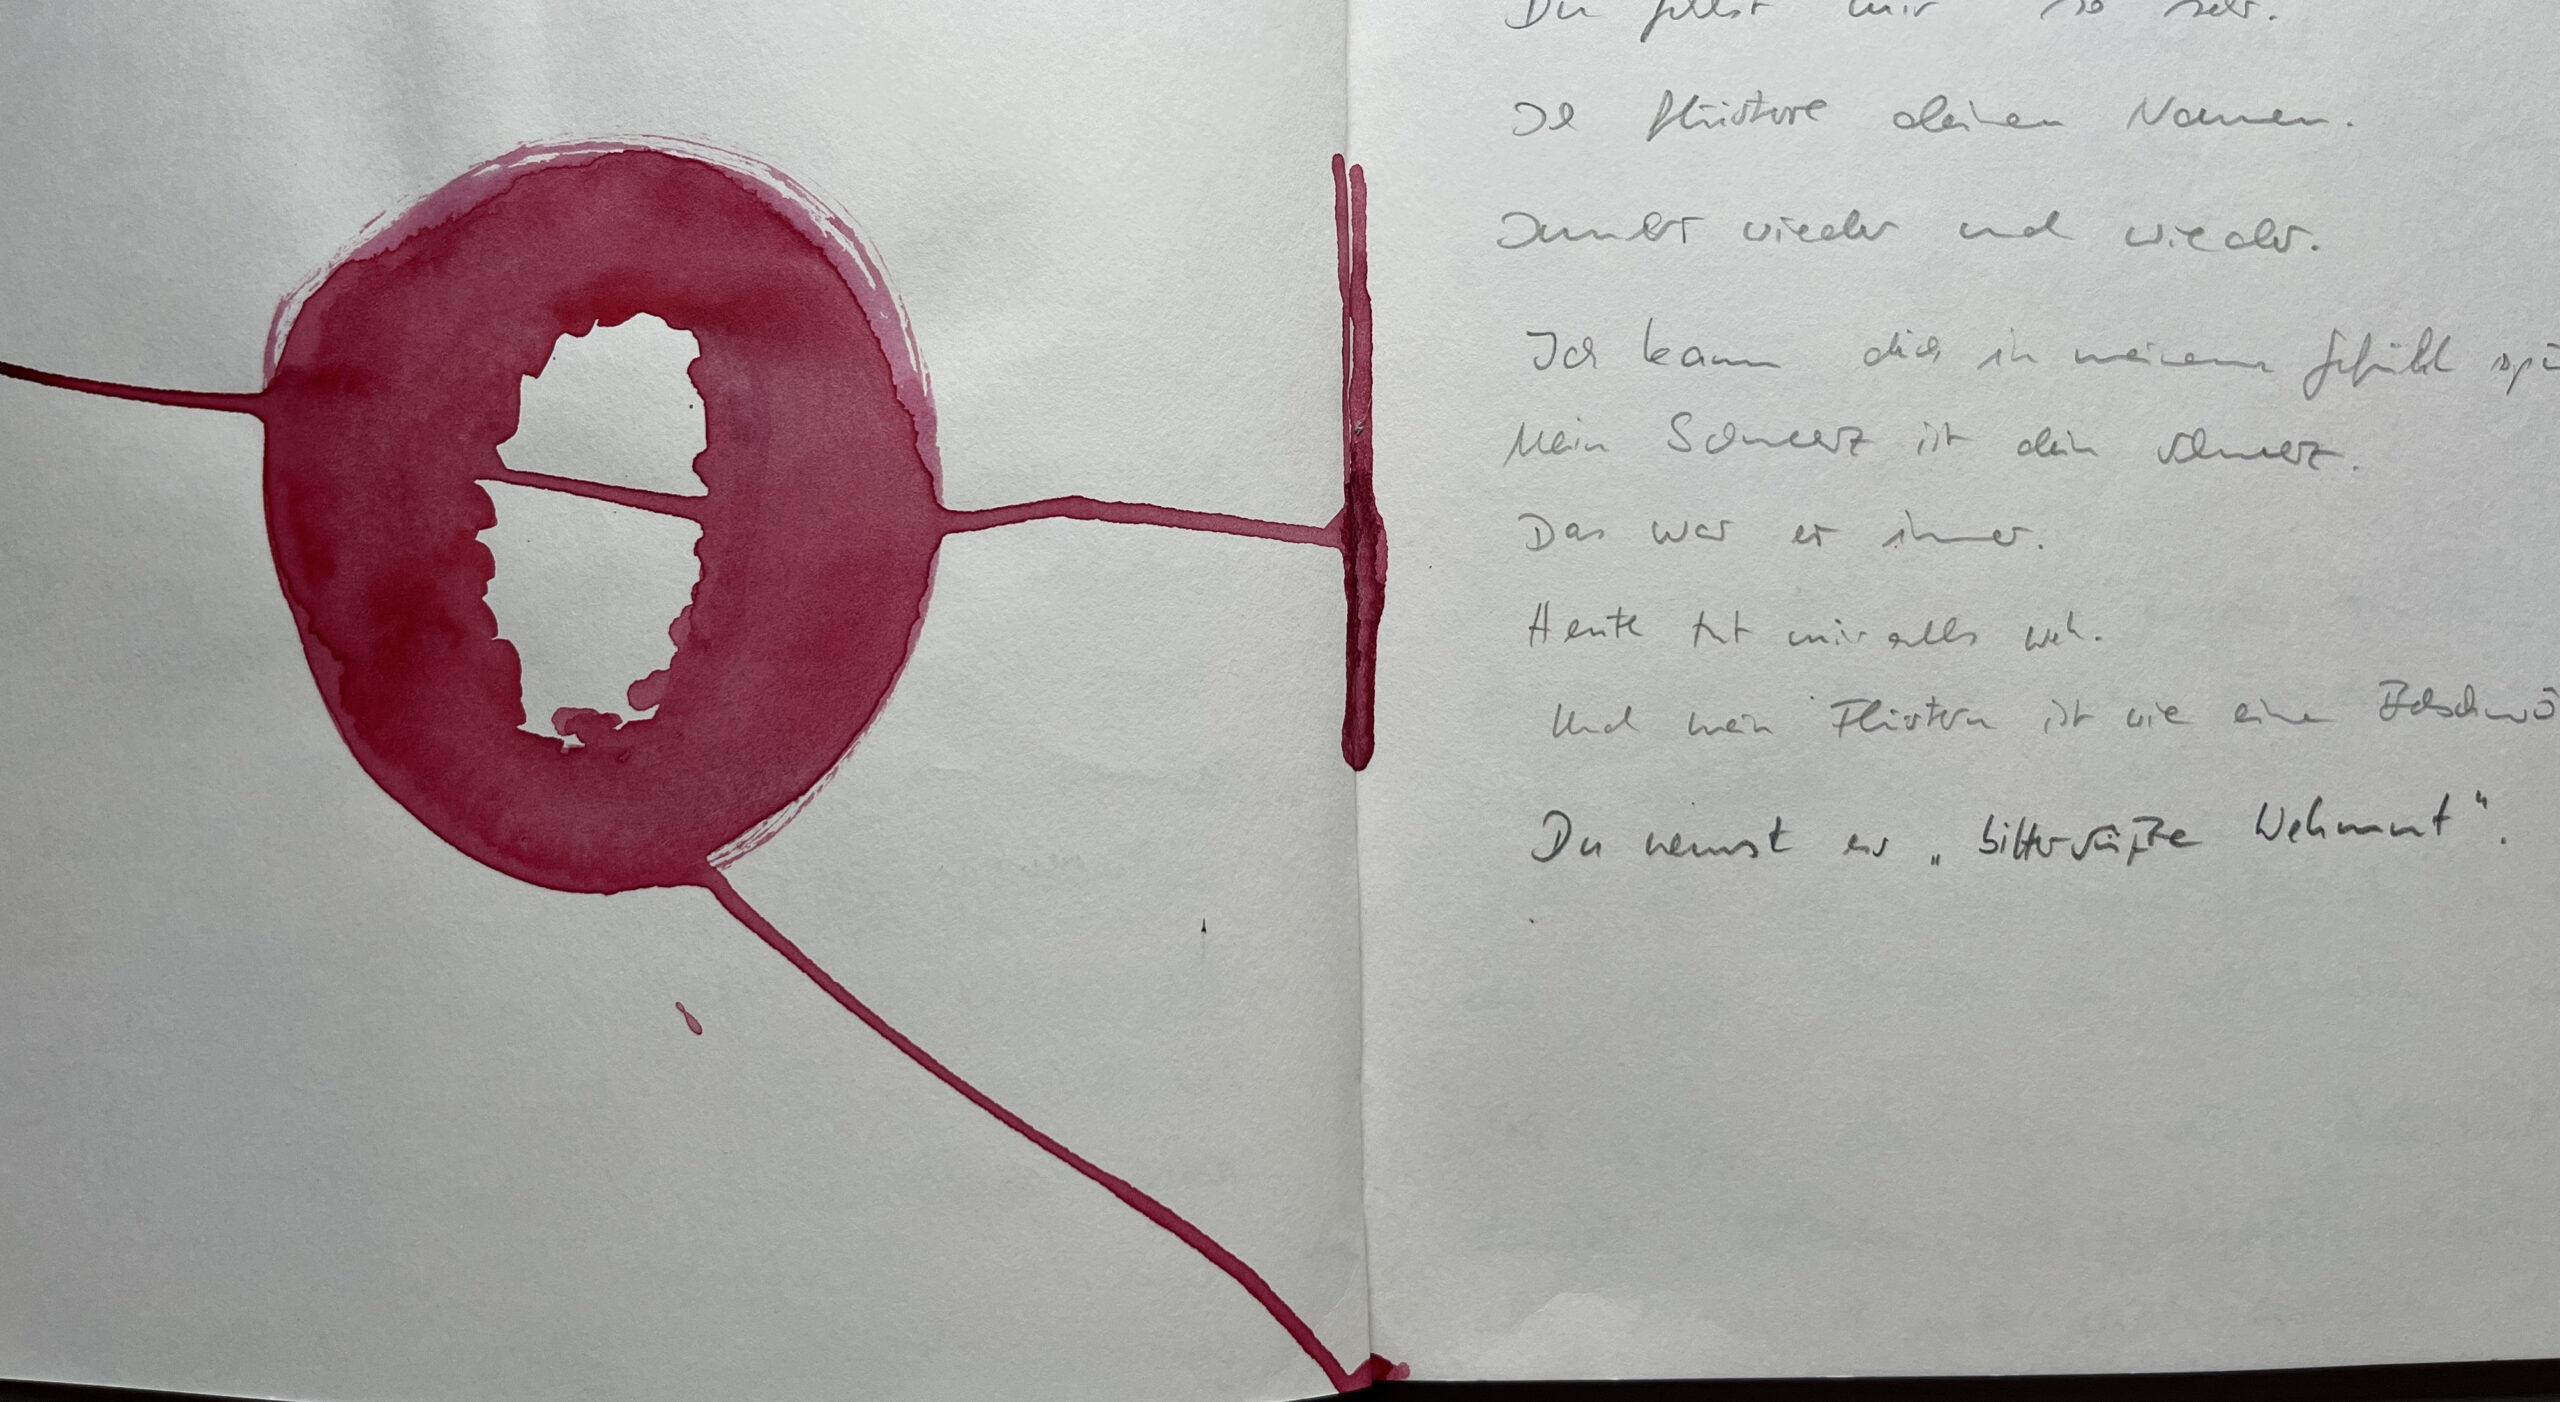 Du fehlst mir so sehr.
Ich flüstere deinen Namen.
Immer wieder und wieder.
Ich kann dich in meinem Gefühl spü
Mein Schmerz ist dein Schmerz.
Das war er immer.
Heute tut mir alles weh.
Und mein Flüstern ist wie eine Beschwö
Du nennst es „bittersüße Wehmut“.